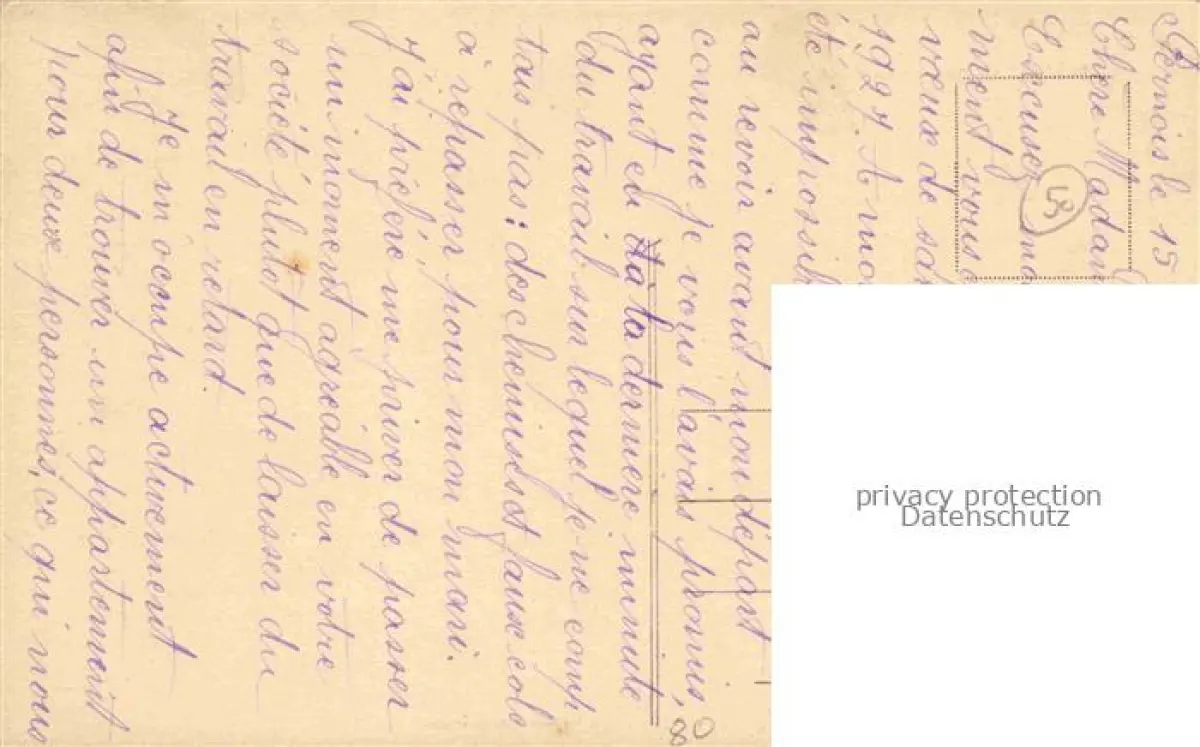 Chermois le 15
Chère Madam
Excusez ma
ment vous
vœux de san
1927. A mo
été impossib
au revoir avant mon départ
comme je vous l'avais promis,
ayant eu à la dernière minute
du travail sur lequel je ne comp
tais pas: des chemises et faux cols
à repasser pour mon mari.
J'ai préféré me priver de passer
un moment agréable en votre
société plutôt que de laisser du
travail en retard.
Je m'occupe activement
afin de trouver un appartement
pour deux personnes, ce qui nous
LS
80
privacy protection
Datenschutz